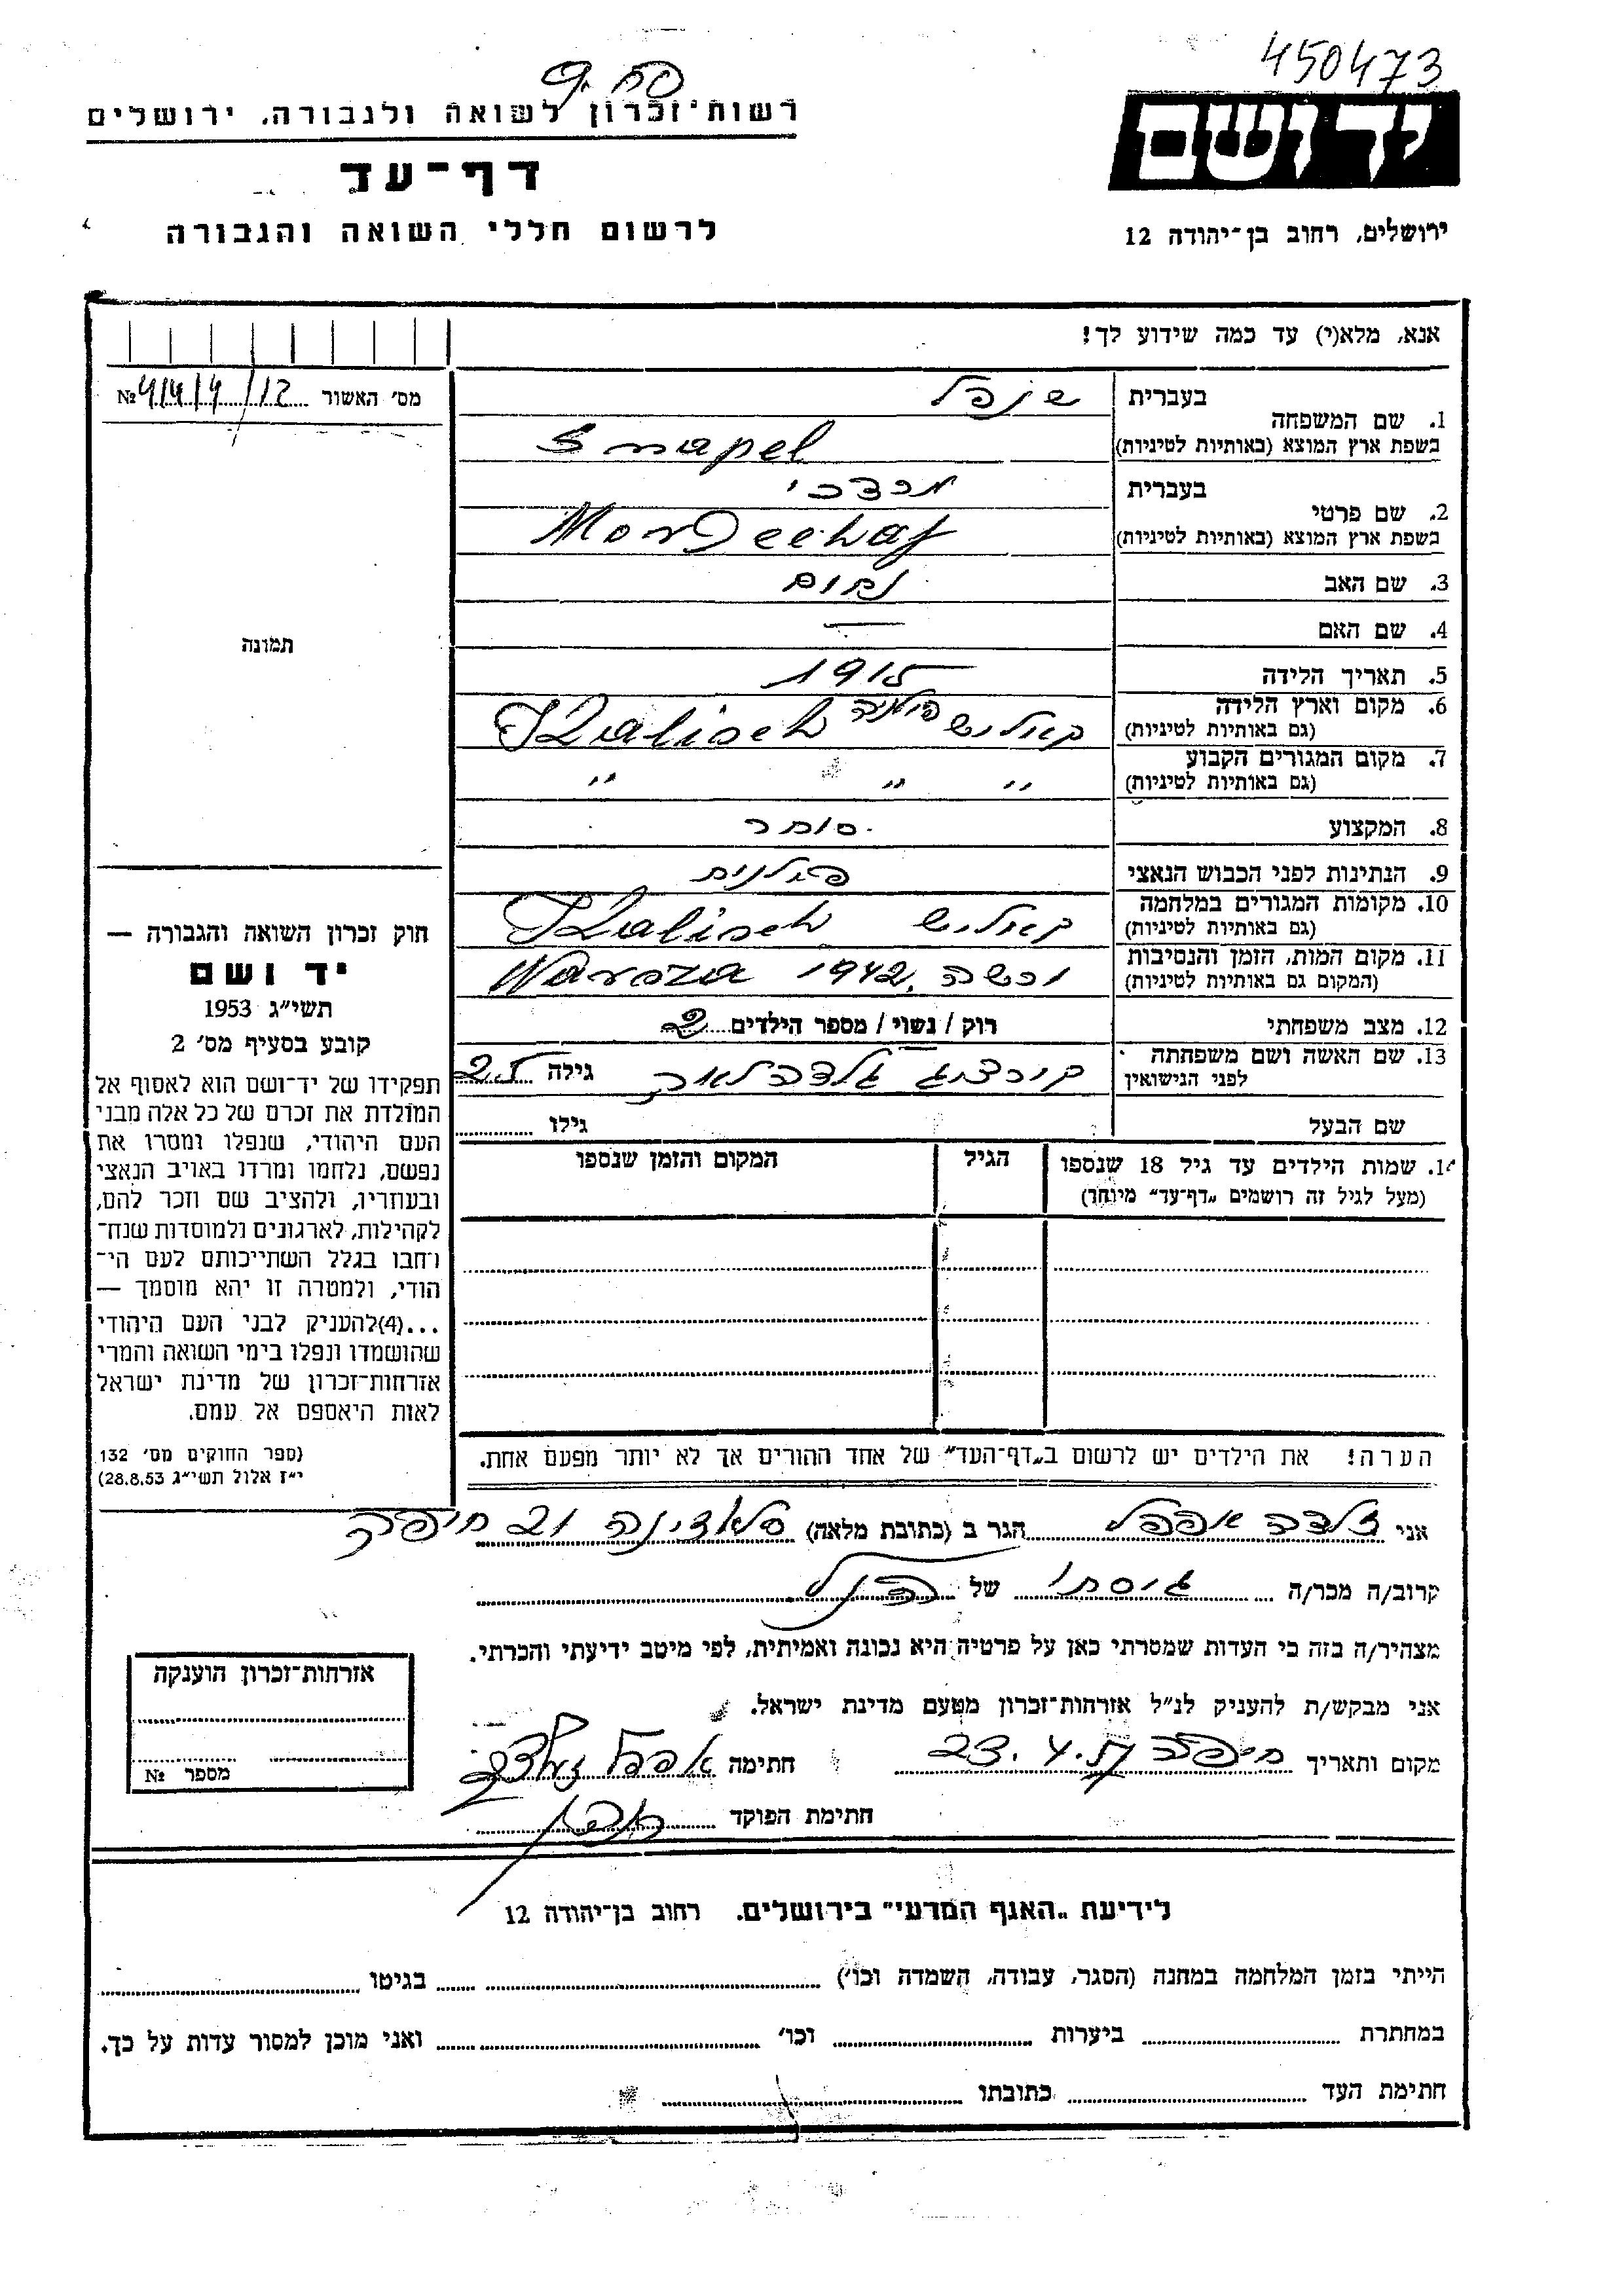 450473
רשות־זכרון לשואה ולגבורה, ירושלים
יד ושם
דף־עד
לרשום חללי השואה והגבורה
ירושלים, רחוב בן־יהודה 12
אנא, מלא(י) עד כמה שידוע לך!
מס׳ האשור 12/ №
1. שם המשפחה
בעברית שנפל
בשפת ארץ המוצא (באותיות לטיניות) Snapel
2. שם פרטי
בעברית מרדכי
בשפת ארץ המוצא (באותיות לטיניות) Mordechaj
3. שם האב נחום
4. שם האם —
5. תאריך הלידה 1915
6. מקום וארץ הלידה
(גם באותיות לטיניות) קאליש פולניה Kalisch
7. מקום המגורים הקבוע
(גם באותיות לטיניות) " " "
8. המקצוע סוחר
9. הנתינות לפני הכבוש הנאצי פולנית
10. מקומות המגורים במלחמה
(גם באותיות לטיניות) קאליש Kalisch
11. מקום המות, הזמן והנסיבות
(המקום גם באותיות לטיניות) ורשה, 1942 Warsza
12. מצב משפחתי רוק / נשוי / מספר הילדים 2
13. שם האשה ושם משפחתה
לפני הנישואין גילה 25
שם הבעל גילו
14. שמות הילדים עד גיל 18 שנספו
(מעל לגיל זה רושמים „דף־עד״ מיוחד)
הגיל
המקום והזמן שנספו
הערה! את הילדים יש לרשום ב„דף־העד״ של אחד ההורים אך לא יותר מפעם אחת.
תמונה
חוק זכרון השואה והגבורה —
יד ושם
תשי״ג 1953
קובע בסעיף מס׳ 2
תפקידו של יד־ושם הוא לאסוף אל
המולדת את זכרם של כל אלה מבני
העם היהודי, שנפלו ומסרו את
נפשם, נלחמו ומרדו באויב הנאצי
ובעוזריו, ולהציב שם וזכר להם,
לקהילות, לארגונים ולמוסדות שנח־
רחבו בגלל השתייכותם לעם הי־
הודי, ולמטרה זו יהא מוסמך —
...(4) להעניק לבני העם היהודי
שהושמדו ונפלו בימי השואה והמרי
אזרחות־זכרון של מדינת ישראל
לאות היאספם אל עמם.
(ספר החוקים מס׳ 132
י״ז אלול תשי״ג 28.8.53)
אני זלדה אפפל הגר ב (כתובת מלאה) 21 חיפה
קרוב/ה מכר/ה גיסתו של הנ״ל
מצהיר/ה בזה כי העדות שמסרתי כאן על פרטיה היא נכונה ואמיתית, לפי מיטב ידיעתי והכרתי.
אני מבקש/ת להעניק לנ״ל אזרחות־זכרון מטעם מדינת ישראל.
מקום ותאריך חיפה 23.4. חתימה אפפל זלדה
חתימת הפוקד
אזרחות־זכרון הוענקה
מספר №
לידיעת „האגף המדעי״ בירושלים, רחוב בן־יהודה 12
הייתי בזמן המלחמה במחנה (הסגר, עבודה, השמדה וכו׳) בגיטו
במחתרת ביערות וכו׳ ואני מוכן למסור עדות על כך.
חתימת העד כתובתו